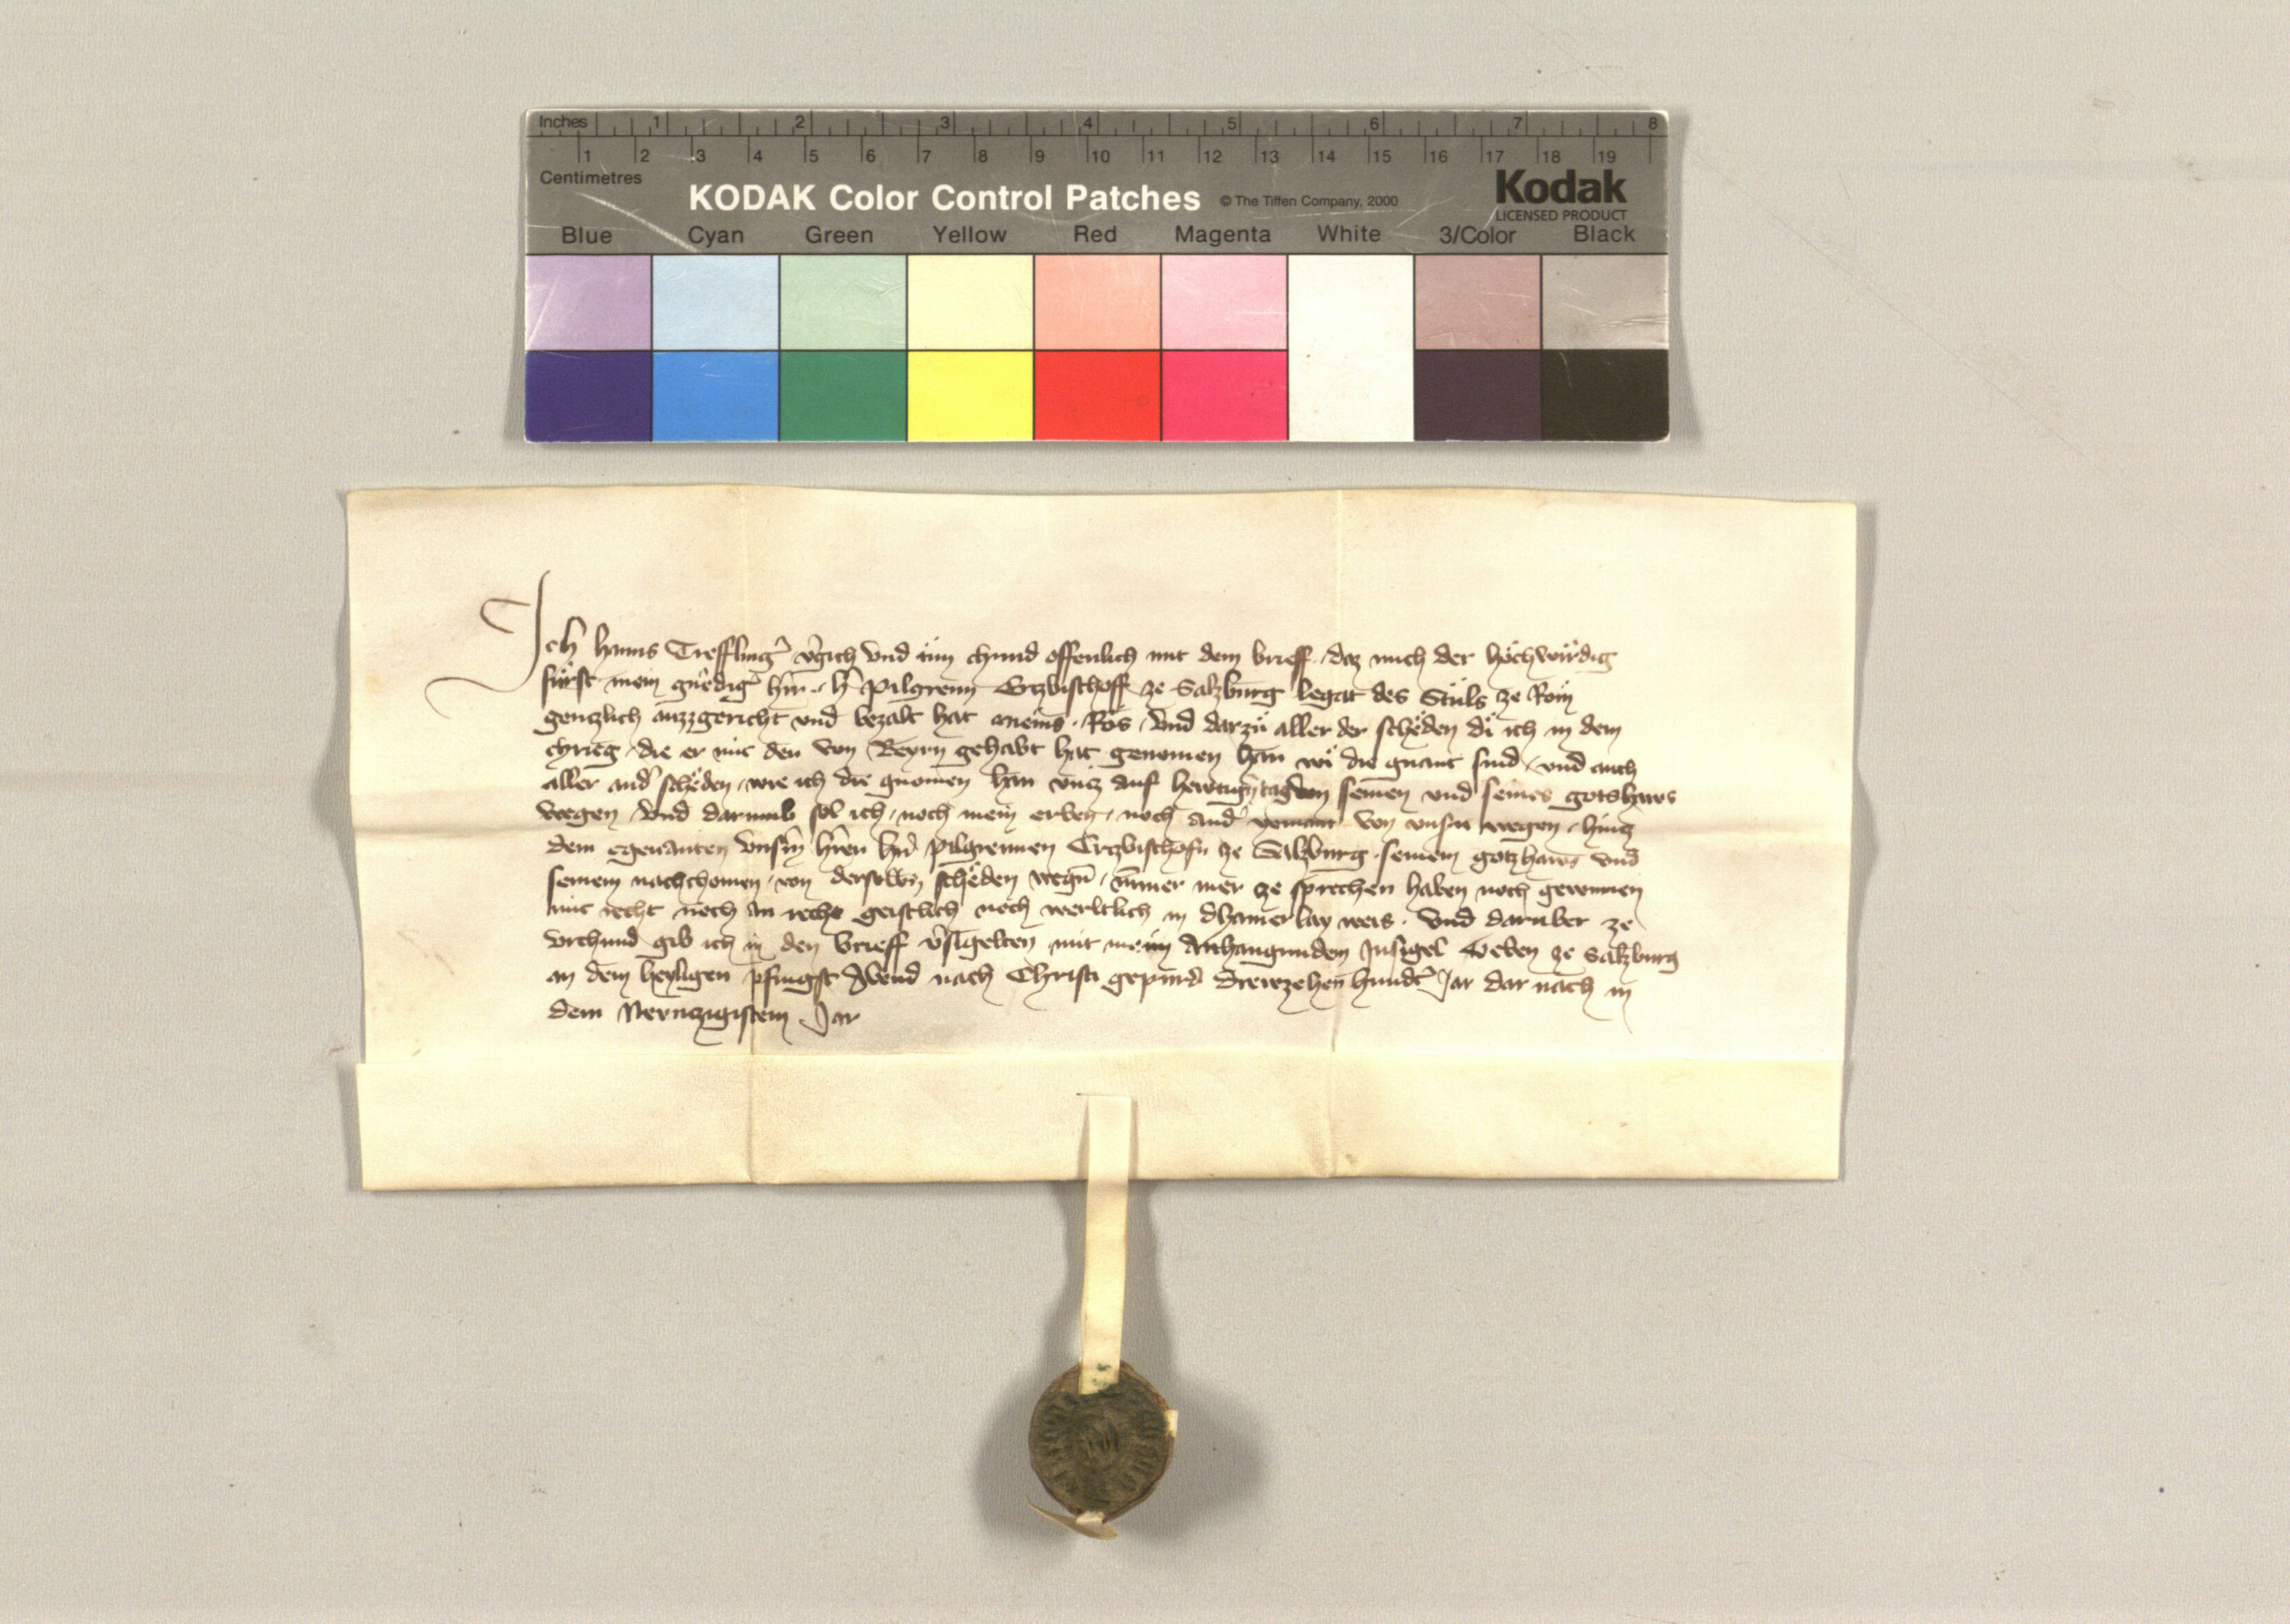 Inches 1 2 3 4 5 6 7 8
1 2 3 4 5 6 7 8 9 10 11 12 13 14 15 16 17 18 19
Centimetres
KODAK Color Control Patches © The Tiffen Company, 2000 Kodak
LICENSED PRODUCT
Blue Cyan Green Yellow Red Magenta White 3/Color Black
Ich hanns Trefflinger vergich vnd tün chund offenlich mit dem brieff daz mich der höchwirdig
fürst mein gnëdiger her her Pilgreim Ertzbischoff ze Salzburg legat des Stüls ze Rom
gentzlich auzzgericht vnd betzalt hat meins Ros vnd darzü aller der schëden di ich in dem
chrieg die er mit den von Beyrn gehabt hat genomen han wi die gnant sind vnd auch
aller ander schëden wie ich die gnomen han vntz auf hewtign tag von seinen vnd seines gotshaws
wegen vnd darumb sol ich noch mein erben noch ander yemant von vnsern wegen hintz
dem egenanten vnserm herren hern Pilgreimen Ertzbischofn ze Salzburg seinem gotzhaws vnd
seinem nachchomen von derselben schëden wegen nimer mer ze sprechen haben noch gewinnen
mit recht noch an recht geistlich noch werltlich in dhainerlay weis vnd darüber ze
vrchund gib ich in den brieff versigelten mit meim Anhangundem Insigel Geben ze Salzburg
an dem heyligen pfingst Abend nach Christi gepürd drewzehenhundert Jar dar nach in
dem Newntzigistem Jar